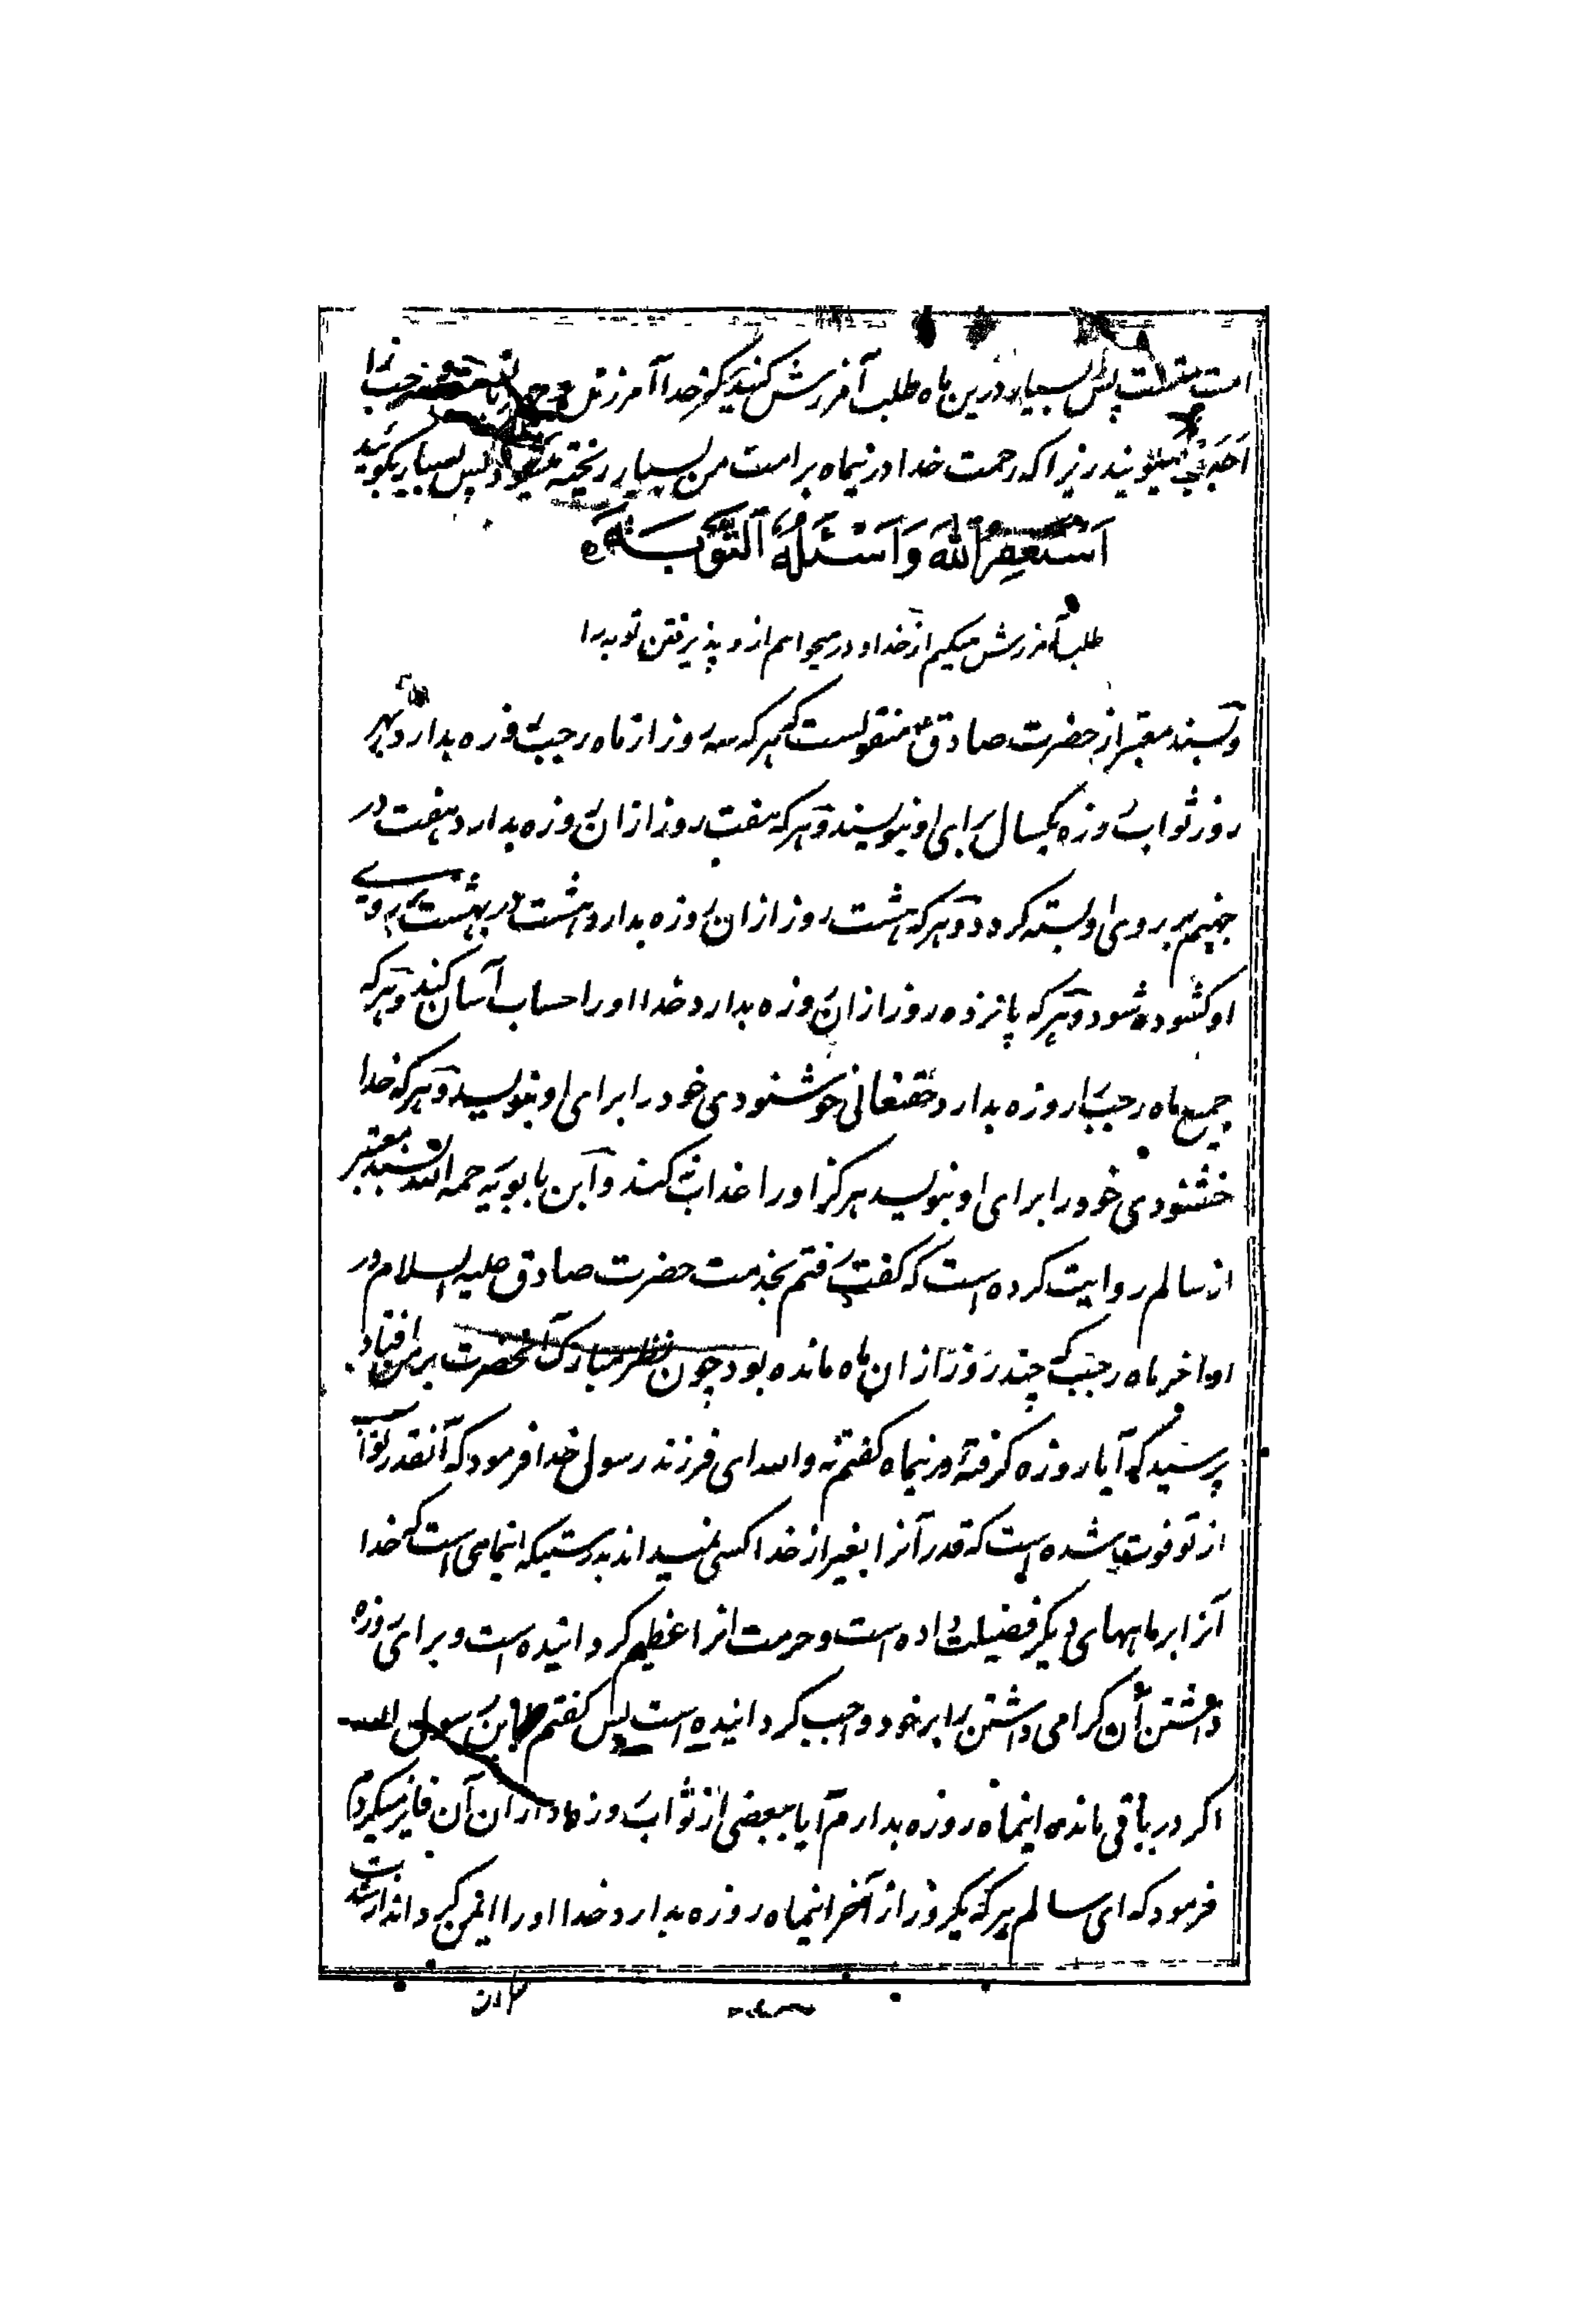 امت منست پس بسیار درین ماه طلب آمرزش کنید که خدا آمرزنده و رجب را
میگویند زیرا که رحمت خدا درینماه بر امت من بسیار ریخته میشود پس بسیار بگوئید
اَسْتَغْفِرُ اللهَ وَاَسْئَلُهُ التَّوْبَةَ
طلب آمرزش میکنم از خدا و درمیخواهم ازو پذیرفتن توبه را
و بسند معتبر از حضرت صادق ع منقولست که هر که سه روز از ماه رجب روزه بدارد بهر
روز ثواب روزه یکسال برای او بنویسند و هر که هفت روز ازان روزه بدارد هفت در
جهنم بر روی او بسته گردد و هر که هشت روز ازان روزه بدارد هشت در بهشت بروی
او گشوده شود و هر که پانزده روز ازان روزه بدارد خدا اورا حساب آسان کند و هر که
جمیع ماه رجب را روزه بدارد حقتعالی خوشنودی خود را برای او بنویسد و هر که خدا
خشنودی خود را برای او بنویسد هرگز اورا عذاب نکند و ابن بابویه رحمه الله بسند معتبر
از سالم روایت کرده است که گفت رفتم بخدمت حضرت صادق علیه السلام در
اواخر ماه رجب که چند روز ازان ماه مانده بود چون نظر مبارک آنحضرت بر من افتاد
پرسید که آیا روزه گرفتهٔ درینماه گفتم نه والله ای فرزند رسول خدا فرمود که آنقدر ثواب
از تو فوت شده است که قدر آنرا بغیر از خدا کسی نمیداند بدرستیکه اینماهی است که خدا
آنرا بر ماههای دیگر فضیلت داده است و حرمت انرا عظیم گردانیده است و برای روزه
داشتن آن گرامی داشتن را بر خود واجب گردانیده است پس گفتم یابن رسول الله
اگر در باقی مانده اینماه روزه بدارم آیا ببعضی از ثواب روزه داران آن فایز میگردم
فرمود که ای سالم هر که یکروز از آخر اینماه روزه بدارد خدا اورا ایمن گرداند از شدت